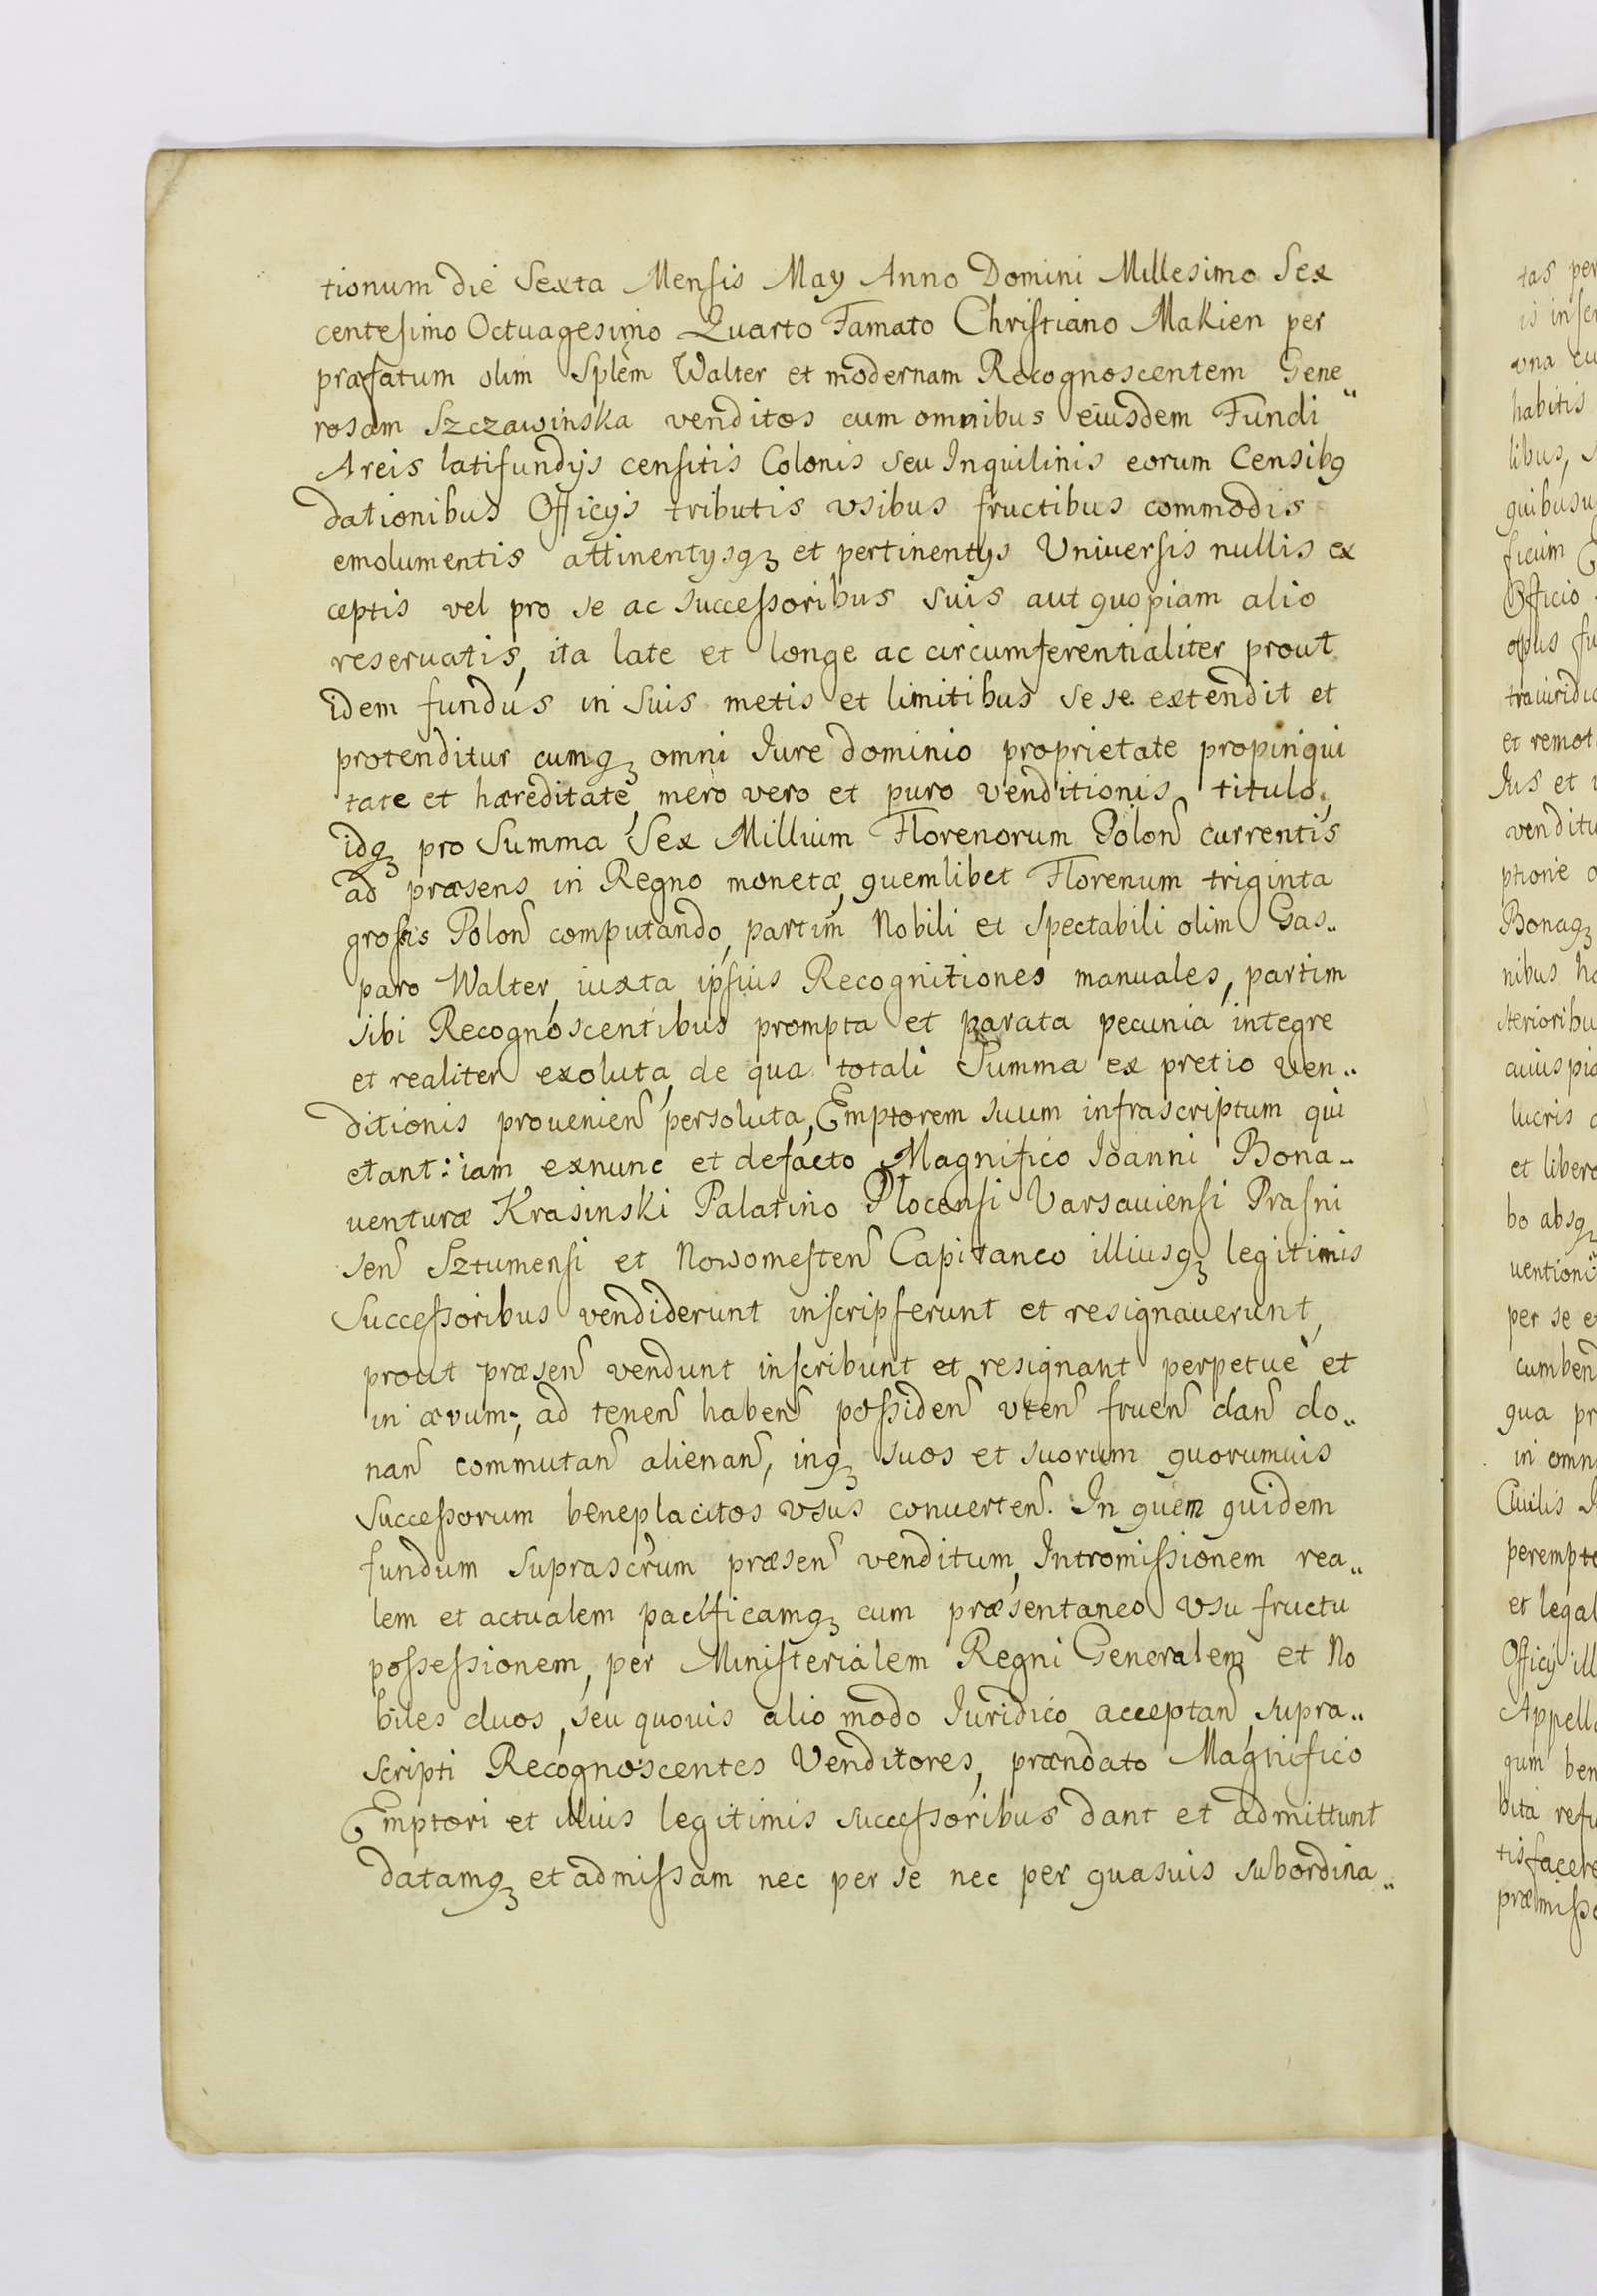 tionum die Sexta Mensis May Anno Domini Millesimo Sex
centesimo Octuagesimo Quarto Famato Christiano Makien per
præfatum olim Splem Walter et modernam Recognoscentem Gene„
rosam Szczawinska venditos cum omnibus eiusdem Fundi
Areis latifundijs censitis Colonis seu Inquilinis eorum Censibꝯ
dationibus Officijs tributis vsibus fructibus commodis
emolumentis attinentysqꝫ et pertinentijs Universis nullis ex
ceptis vel pro se ac successoribus suis aut quopiam alio
reseruatis, ita late et longe ac circumferentialiter prout
idem fundus in suis metis et limitibus se se extendit et
protenditur cumqꝫ omni Iure dominio proprietate propinqui
tate et hæreditate, mero vero et puro venditionis titulo,
idqꝫ pro Summa Sex Millium Florenorum Polon currentis
ad præsens in Regno monetæ, quemlibet Florenum triginta
grossis Polon computando, partim Nobili et Spectabili olim Gas„
paro Walter, iuxta ipsius Recognitiones manuales, partim
sibi Recognoscentibus prompta et parata pecunia integre
et realiter exoluta, de qua totali Summa ex pretio ven„
ditionis prouenien persoluta, Emptorem suum infrascriptum qui
etant: iam exnunc et defacto Magnifico Ioanni Bona„
uenturæ Krasinski Palatino Plocensi Varsauiensi Prasni
sen Sztumensi et Nowomesten Capitaneo illiusqꝫ legitimis
Successoribus vendiderunt inscripserunt et resignauerunt,
prout præsen vendunt inscribunt et resignant perpetue et
in ævum, ad tenen haben possiden vten fruen dan do„
nan commutan alienan, inqꝫ suos et suorum quorumuis
Successorum beneplacitos vsus conuerten. In quem quidem
fundum suprascrum præsen venditum, Intromissionem rea„
lem et actualem pacificamqꝫ cum præsentaneo vsu fructu
possessionem, per Ministerialem Regni Generalem et No
biles duos, seu quouis alio modo Iuridico acceptan, supra„
scripti Recognoscentes Venditores, prændato Magnifico
Emptori et illius legitimis successoribus dant et admittunt
datamqꝫ et admissam nec per se nec per quasuis subordina„
tas per
ona cu
habitis
libus,
ficium
Officio
opus fu
et remot
Ius et
venditu
Bonaqꝫ
nibus
lucris
et liber
bo absqꝫ
uentioni
per se e
cumben
qua pr
in omn
Ciuilis
perempt
et legal
Officij ill
Appell
bita refu
tisfacere
præmiss